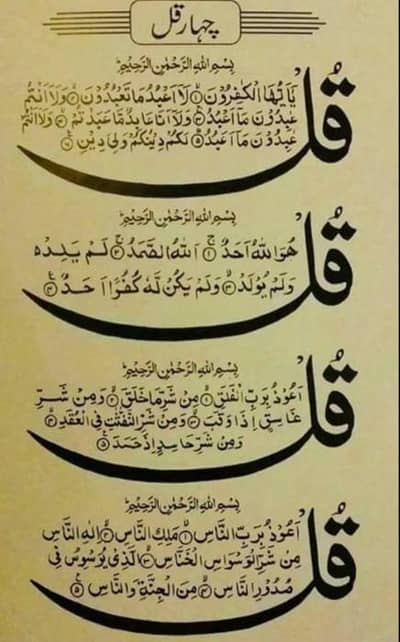 چہار قل
بِسْمِ اللهِ الرَّحْمٰنِ الرَّحِيْمِ
قُلْ يٰٓاَيُّهَا الْكٰفِرُوْنَ ۝١ لَآ اَعْبُدُ مَا تَعْبُدُوْنَ ۝٢ وَلَآ اَنْتُمْ
عٰبِدُوْنَ مَآ اَعْبُدُ ۝٣ وَلَآ اَنَا عَابِدٌ مَّا عَبَدْتُّمْ ۝٤ وَلَآ اَنْتُمْ
عٰبِدُوْنَ مَآ اَعْبُدُ ۝٥ لَكُمْ دِيْنُكُمْ وَلِيَ دِيْنِ ۝٦
بِسْمِ اللهِ الرَّحْمٰنِ الرَّحِيْمِ
قُلْ هُوَ اللهُ اَحَدٌ ۝١ اَللهُ الصَّمَدُ ۝٢ لَمْ يَلِدْ ۙ
وَلَمْ يُوْلَدْ ۝٣ وَلَمْ يَكُنْ لَّهٗ كُفُوًا اَحَدٌ ۝٤
بِسْمِ اللهِ الرَّحْمٰنِ الرَّحِيْمِ
قُلْ اَعُوْذُ بِرَبِّ الْفَلَقِ ۝١ مِنْ شَرِّ مَا خَلَقَ ۝٢ وَمِنْ شَرِّ
غَاسِقٍ اِذَا وَقَبَ ۝٣ وَمِنْ شَرِّ النَّفّٰثٰتِ فِي الْعُقَدِ ۝٤
وَمِنْ شَرِّ حَاسِدٍ اِذَا حَسَدَ ۝٥
بِسْمِ اللهِ الرَّحْمٰنِ الرَّحِيْمِ
قُلْ اَعُوْذُ بِرَبِّ النَّاسِ ۝١ مَلِكِ النَّاسِ ۝٢ اِلٰهِ النَّاسِ ۝٣
مِنْ شَرِّ الْوَسْوَاسِ الْخَنَّاسِ ۝٤ الَّذِيْ يُوَسْوِسُ فِيْ
صُدُوْرِ النَّاسِ ۝٥ مِنَ الْجِنَّةِ وَالنَّاسِ ۝٦